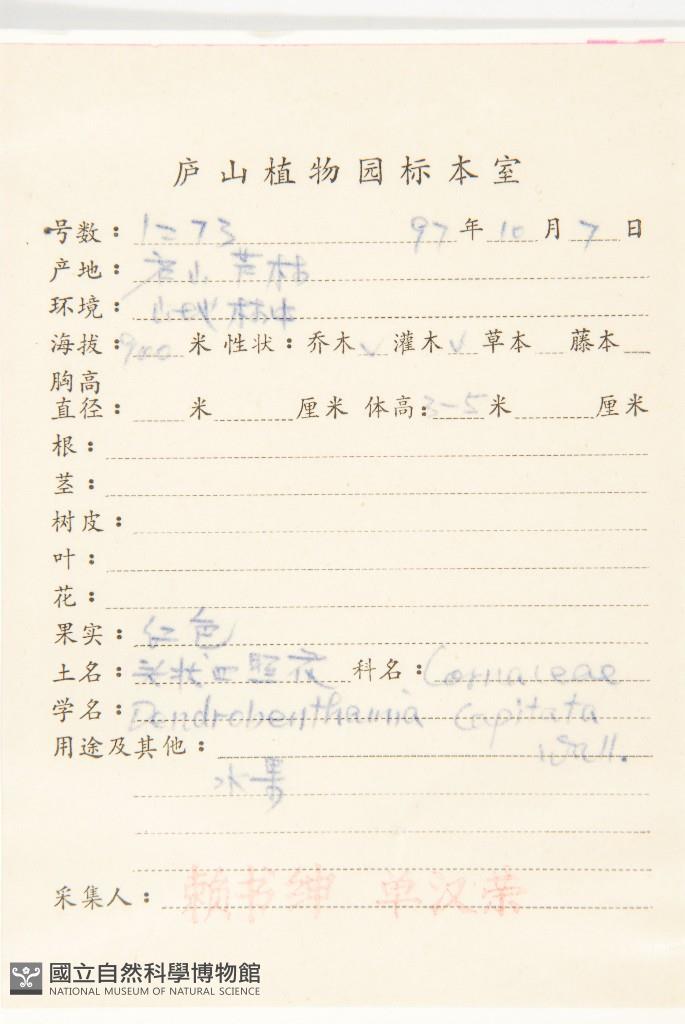 庐山植物园标本室
号数：1273 97年10月7日
产地：庐山芦林
环境：山地林中
海拔900米 性状：乔木✓ 灌木✓ 草本 藤本
胸高
直径： 米 厘米 体高：3-5米 厘米
根：
茎：
树皮：
叶：
花：
果实：红色
土名：头状四照花 科名：Cornaceae
学名：Dendrobenthamia Capitata
Wall.
用途及其他：
水果
采集人：赖书绅 单汉荣
國立自然科學博物館
NATIONAL MUSEUM OF NATURAL SCIENCE